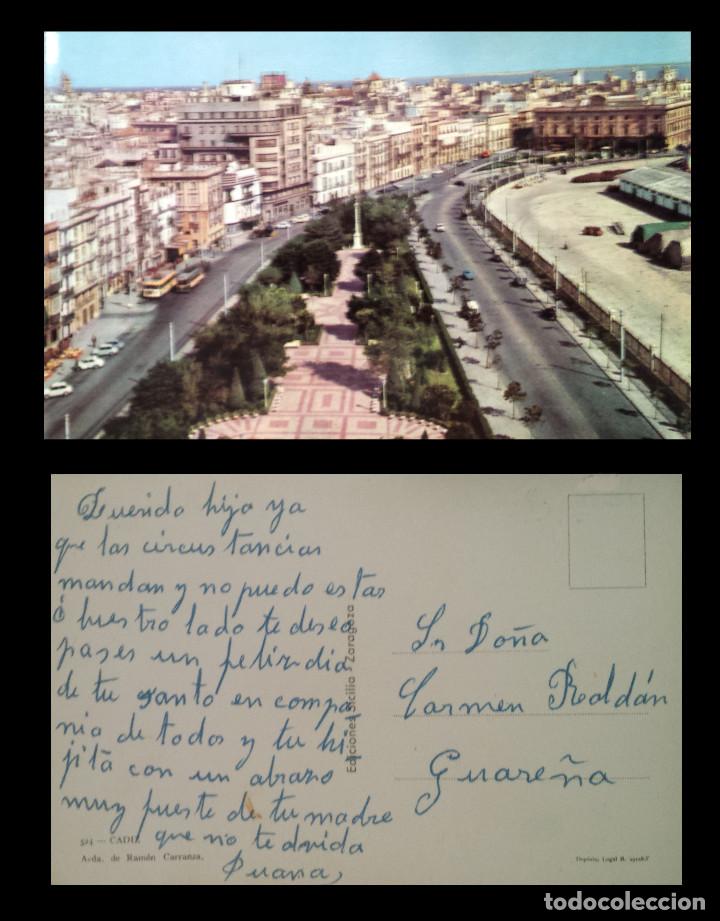 Querido hijo ya
que las circus tancias
mandan y no puedo estar
ó buestro lado te deseo
pases un feliz dia
de tu santo en compa
nia de todos y tu hi
jita con un abrazo
muy fuerte de tu madre
que no te olvida
Juana,
524 — CADIZ
Avda. de Ramón Carranza.
Ediciones Sicilia Zaragoza
Sr Doña
Carmen Roldán
Guareña
Depósito, Legal B.
todocoleccion